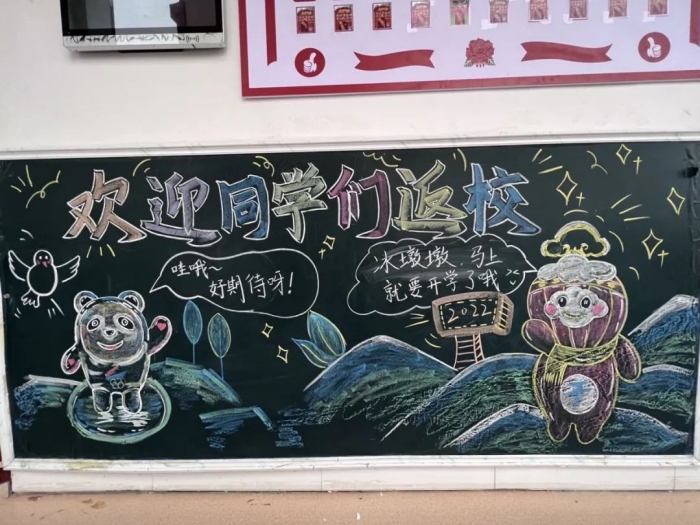 欢迎同学们返校
哇哦~
好期待呀！
冰墩墩，马上
就要开学了哦
2022